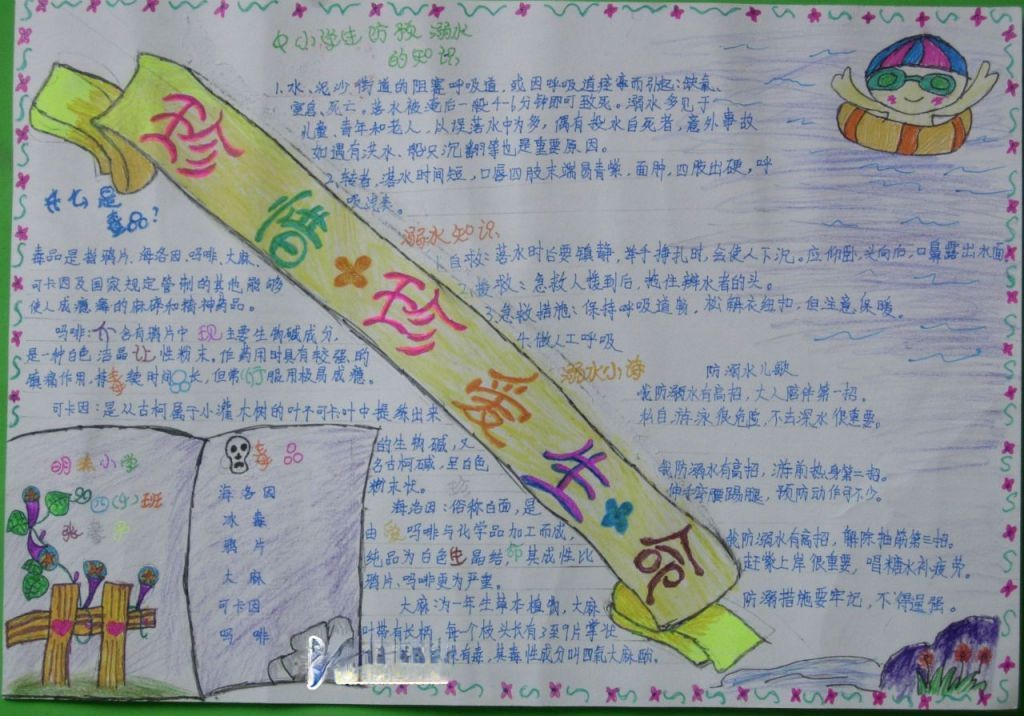 中小学生防预溺水
的知识
1.水、泥沙街道的阻塞呼吸道,或因呼吸道痉挛而引起:缺氧、
窒息、死亡,落水被淹后一般4-6分钟即可致死。溺水多见于
儿童、青年和老人,以误落水中为多,偶有投水自死者,意外事故
如遇有洪水、船只沉翻等也是重要原因。
2.轻者,落水时间短,口唇四肢末端易青紫,面肿,四肢出硬,呼
吸浅表。
珍惜珍爱生命
溺水知识
1.自救:落水时后要镇静,举手挣扎时,会使人下沉。应仰卧,头向后,口鼻露出水面
救:急救人援到后,抱住
3.急救措施:保持呼吸道畅,松解衣纽扣,但注意保暖。
4.做人工呼吸
溺水小诗
防溺水儿歌
我防溺水有高招,大人陪伴第一招。
私自游泳很危险,不去深水很重要。
我防溺水有高招,游前热身第二招。
伸手弯腰踢腿,预防动作可不少。
我防溺水有高招,解除抽筋第三招。
赶紧上岸很重要,喝糖水补疲劳。
防溺措施要牢记,不得逞强。
什么是
毒品?
毒品是指鸦片、海洛因、吗啡、大麻、
可卡因及国家规定管制的其他能够
使人成瘾毒的麻碎和精神药品。
吗啡:介含有鸦片中现主要生物碱成分,
是一种白色洁晶让性粉末。作药用时具有较强的
镇痛作用,持毒续时间长,但常行服用极易成瘾。
可卡因:是从古柯属于小灌木树的叶子可卡叶中提炼出来
的生物碱,又
名古柯碱,呈白色
粉末状。
海洛因:俗称白面,是
由爱吗啡与化学品加工而成,
纯品为白色生晶结,命其成性比
鸦片、吗啡更为严重。
大麻:为一年生草本植物,大麻
叶带有长柄,每个枝头长有3至9片掌状
有毒,其毒性成分叫四氧大麻酚。
明 小学
四(4)班
张
毒品
海洛因
冰毒
鸦片
大麻
可卡因
吗啡